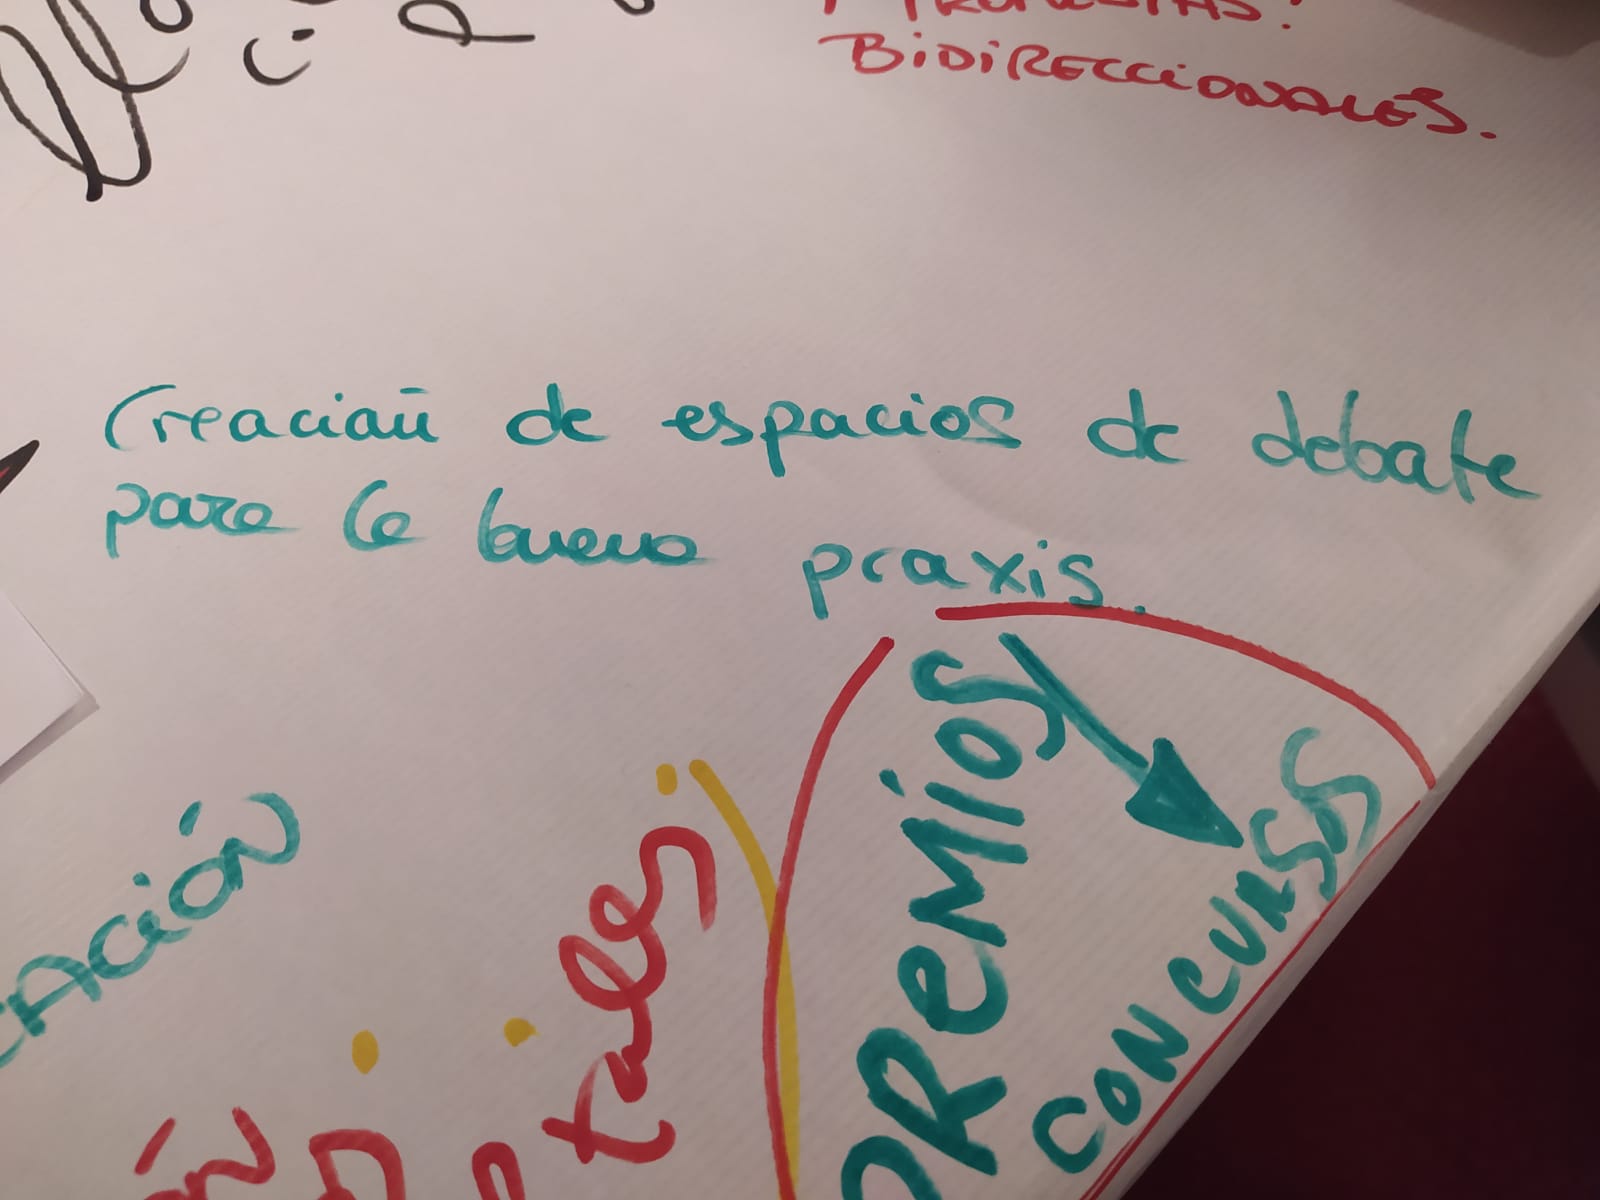 BIDIRECCIONALES.
Creación de espacios de debate
para la buena praxis.
PREMIOS
CONCURSOS
tales